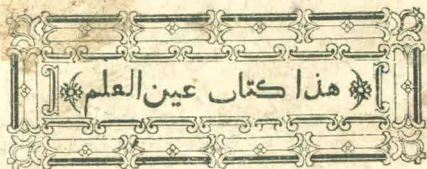 هذا كتاب عين العلم